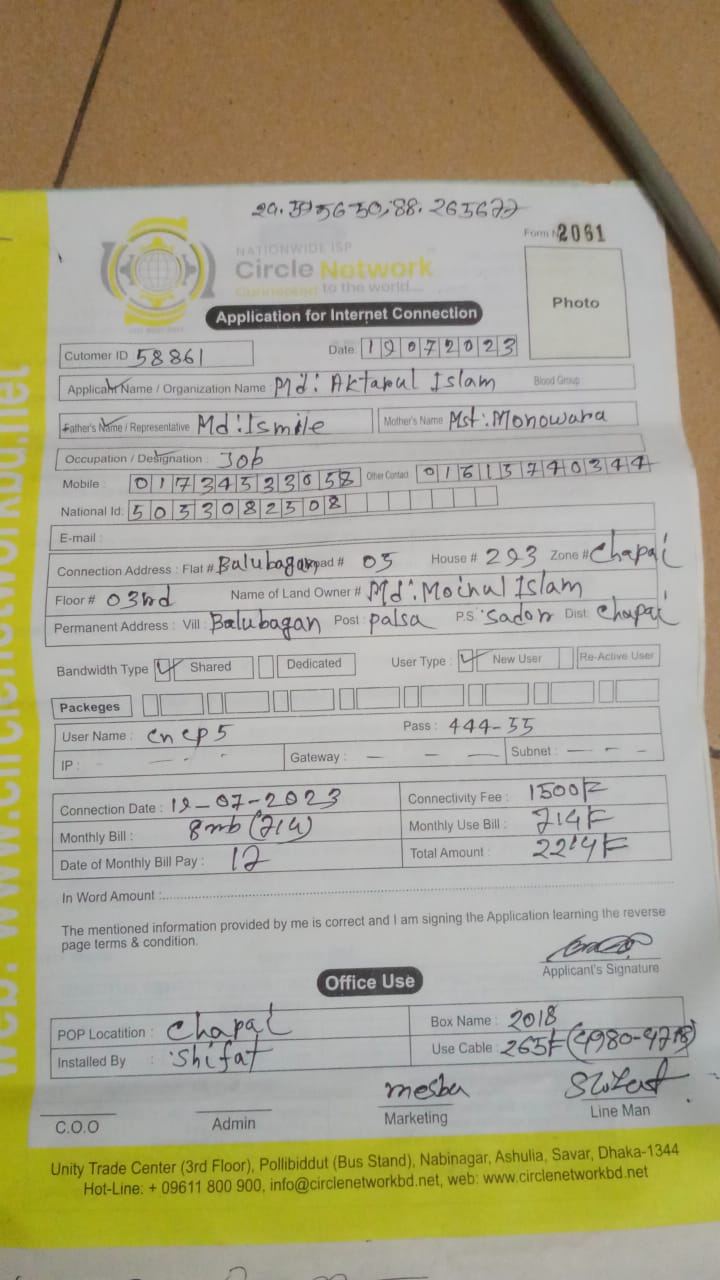 24.595630,88.265677
Form N 2061
NATIONWIDE ISP
Circle Network
Connected to the world....
Photo
Application for Internet Connection
Cutomer ID 58861 Date 19072023
Applicant Name / Organization Name : Md: Aktarul Islam Blood Group :
Father's Name / Representative Md: Ismile Mother's Name Mst: Monowara
Occupation / Designation : Job
Mobile : 01734533058 Other Contact 01615740344
National Id: 5053082508
E-mail :
Connection Address : Flat # Balubagan pad # 05 House # 293 Zone # Chapai
Floor # 03rd Name of Land Owner # Md: Moinul Islam
Permanent Address : Vill : Balubagan Post : palsa P.S. Sador Dist. Chapai
Bandwidth Type Shared Dedicated User Type : New User Re-Active User
Packeges
User Name : cncp5 Pass : 444-55
IP : - - - Gateway : - - - Subnet : - - -
Connection Date : 19-07-2023 Connectivity Fee : 1500/=
Monthly Bill : 8mb (714) Monthly Use Bill : 714/=
Date of Monthly Bill Pay : 12 Total Amount : 2214/=
In Word Amount :
The mentioned information provided by me is correct and I am signing the Application learning the reverse
page terms & condition.
Applicant's Signature
Office Use
POP Locatition : Chapai Box Name : 2018
Installed By : Shifat Use Cable : 265/=
mesba Shifat
C.O.O Admin Marketing Line Man
Unity Trade Center (3rd Floor), Pollibiddut (Bus Stand), Nabinagar, Ashulia, Savar, Dhaka-1344
Hot-Line: + 09611 800 900, info@circlenetworkbd.net, web: www.circlenetworkbd.net
web: www.circlenetworkbd.net